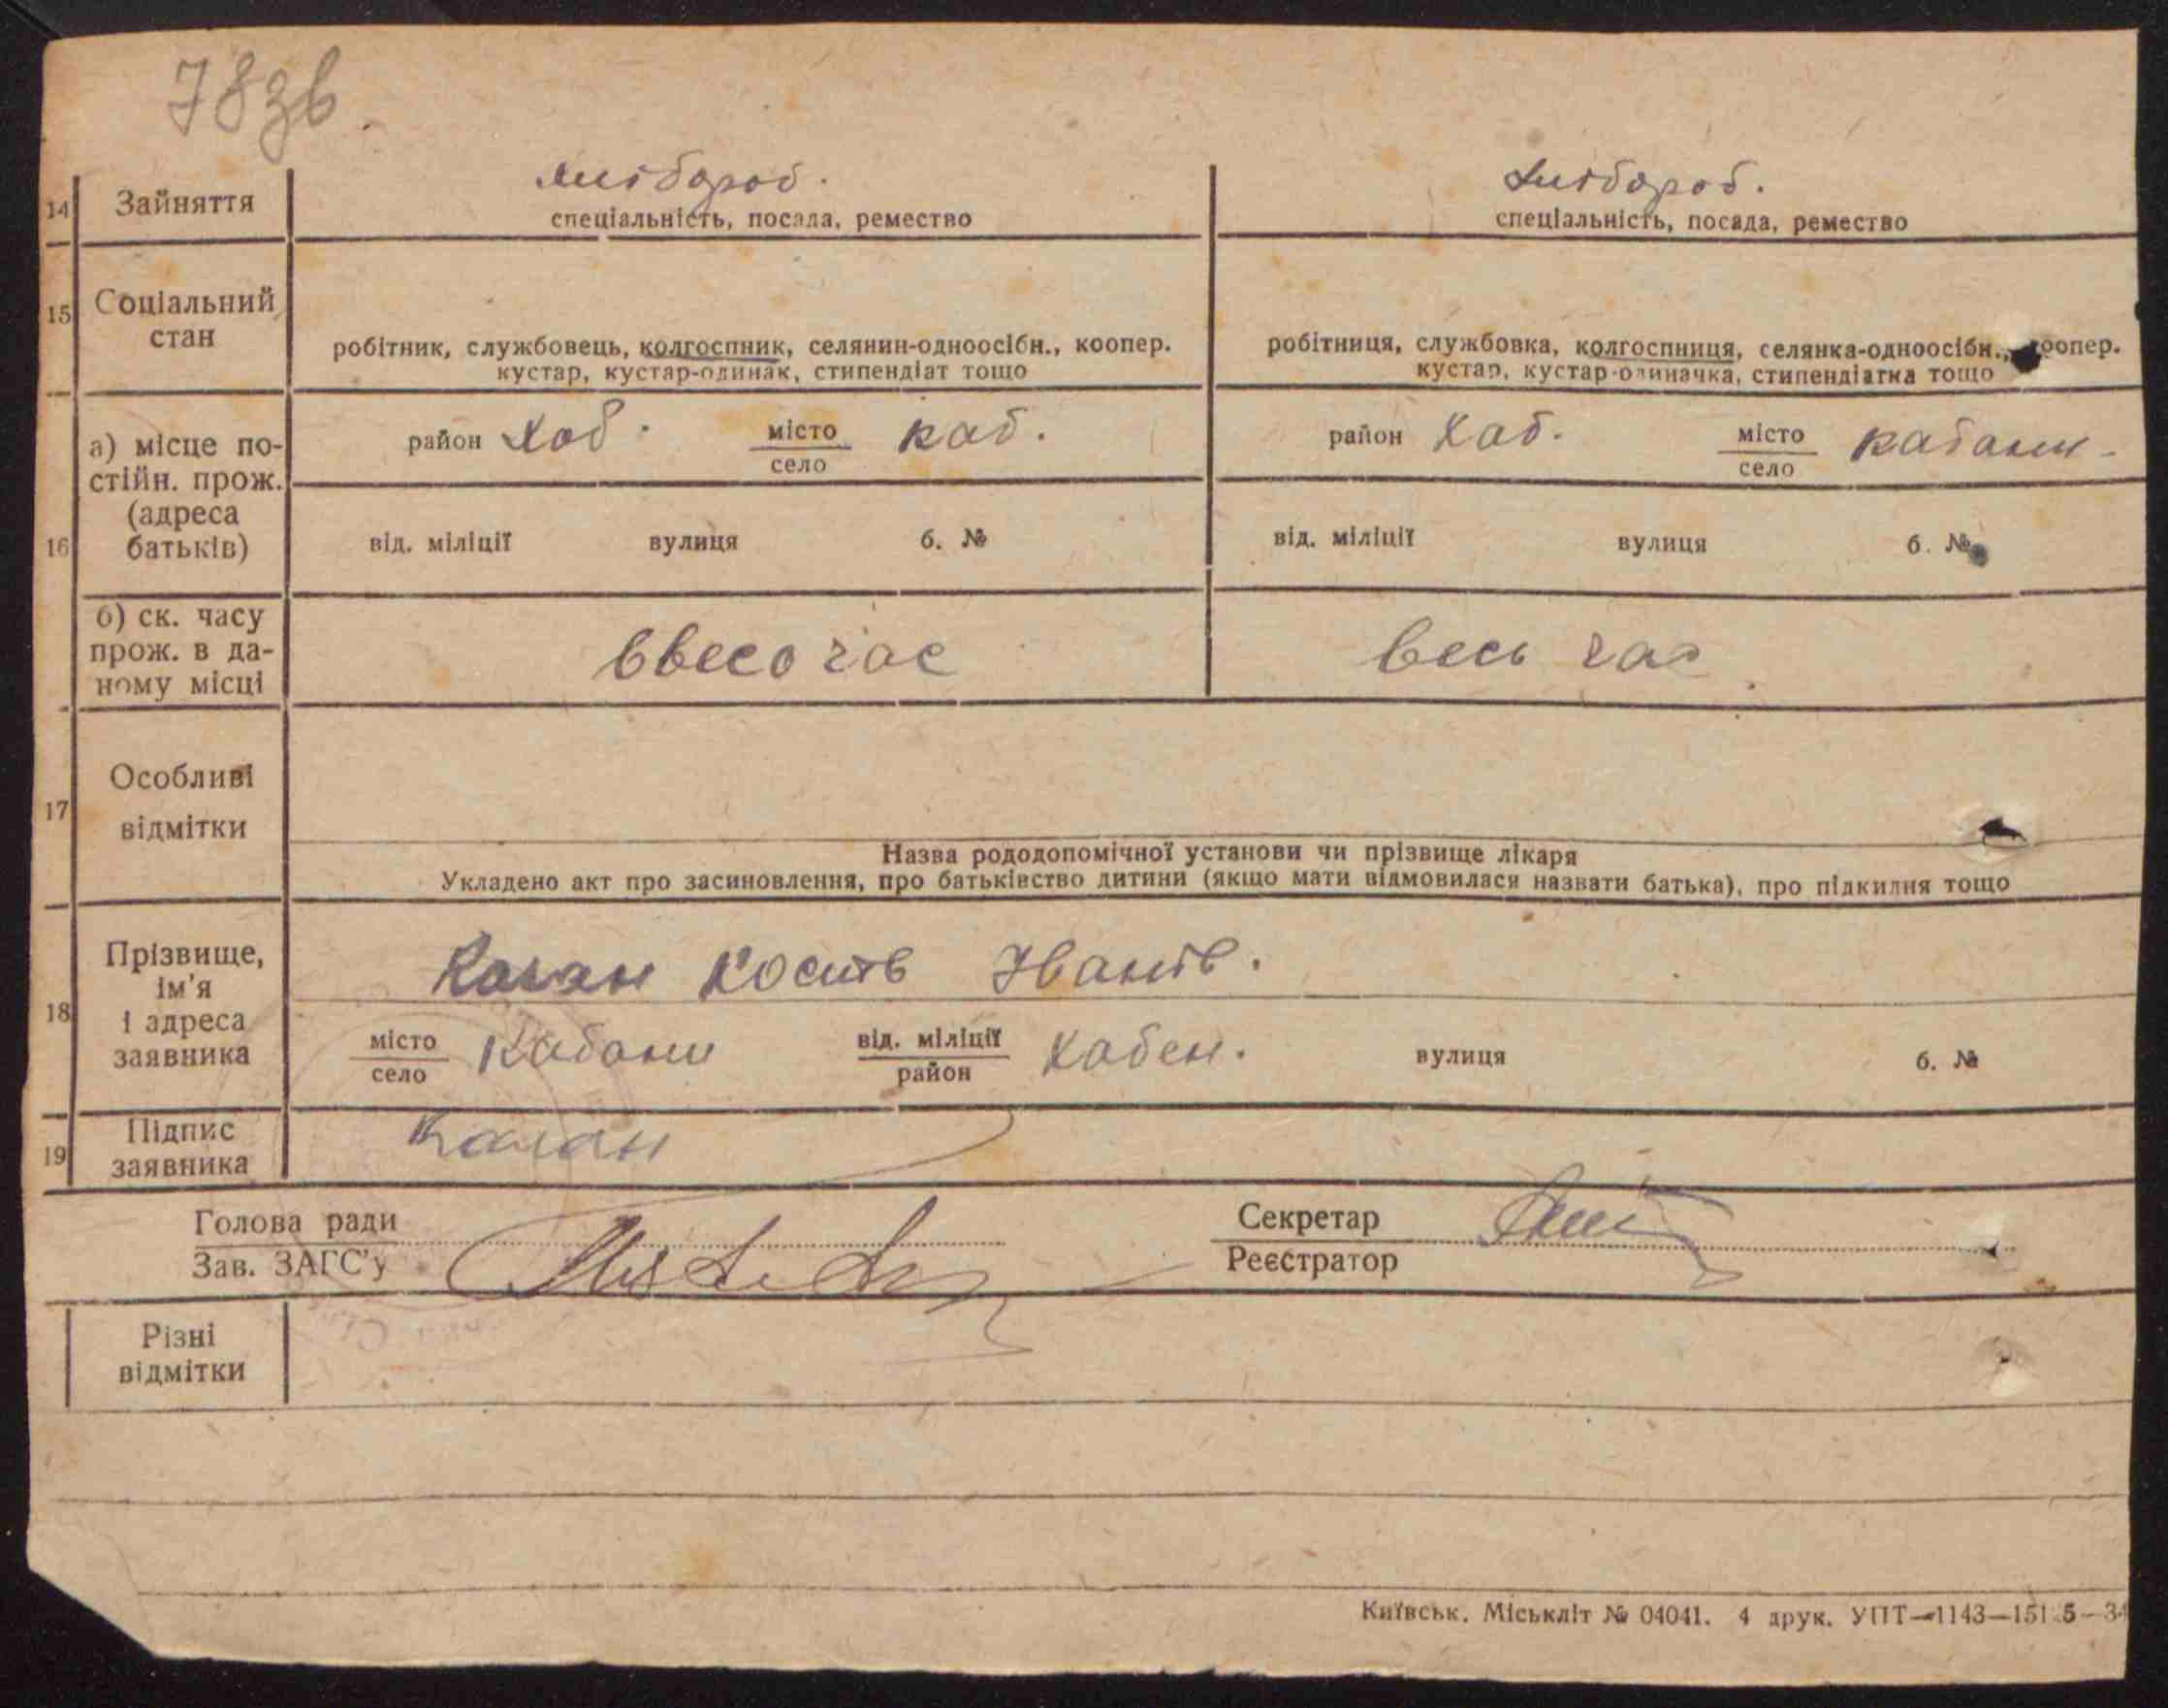 78зв.
14 Зайняття хлібороб. хлібороб.
спеціальність, посада, ремество спеціальність, посада, ремество
15 Соціальний стан
робітник, службовець, колгоспник, селянин-одноосібн., коопер. кустар, кустар-одинак, стипендіат тощо
робітниця, службовка, колгоспниця, селянка-одноосібн., коопер. кустар, кустар-одиначка, стипендіатка тощо
16 а) місце постійн. прож. (адреса батьків)
район Хаб. місто село каб. район Хаб. місто село кабани.
від. міліції вулиця б. № від. міліції вулиця б. №
б) ск. часу прож. в даному місці
ввесь час весь час
17 Особливі відмітки
Назва рододопомічної установи чи прізвище лікаря
Укладено акт про засиновлення, про батьківство дитини (якщо мати відмовилася назвати батька), про підкидня тощо
18 Прізвище, ім'я і адреса заявника
Каган Іванів.
місто село Кабани від. міліції район Хабен. вулиця б. №
19 Підпис заявника Каган
Голова ради Секретар
Зав. ЗАГС'у Реєстратор
Різні відмітки
Київськ. Міськліт № 04041. 4 друк. УПТ—1143—15125—34